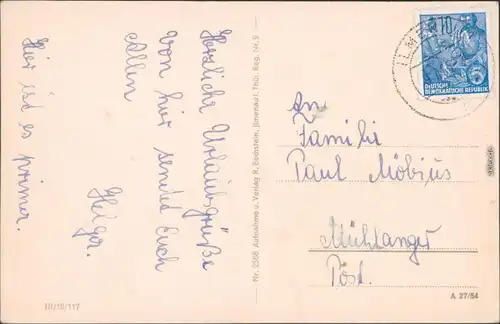 Herzliche Urlaubsgrüße
von hier sendet Euch
Allen
Helga.
Hier ist es prima.
Nr. 2568 Aufnahme u. Verlag R. Bechstein, Ilmenau i. Thür. Reg. Nr. 9
10
DEUTSCHE
DEMOKRATISCHE REPUBLIK
An
Familie
Paul Möbius
Mühlanger
Post.
III/18/117
A 27/54